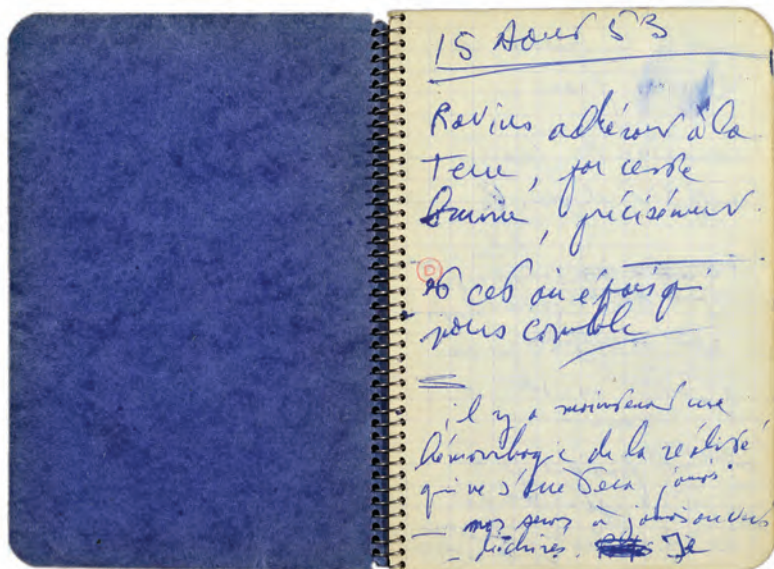 15 Aout 53
Ravins adhérant à la
Terre, par cette
, précisément.
D
et cet air épais qui
nous comble
il y a maintenant une
hémorrhagie de la réalité
qui ne s'arrêtera jamais
— mes sens à jamais ouverts
— déchirés. Je